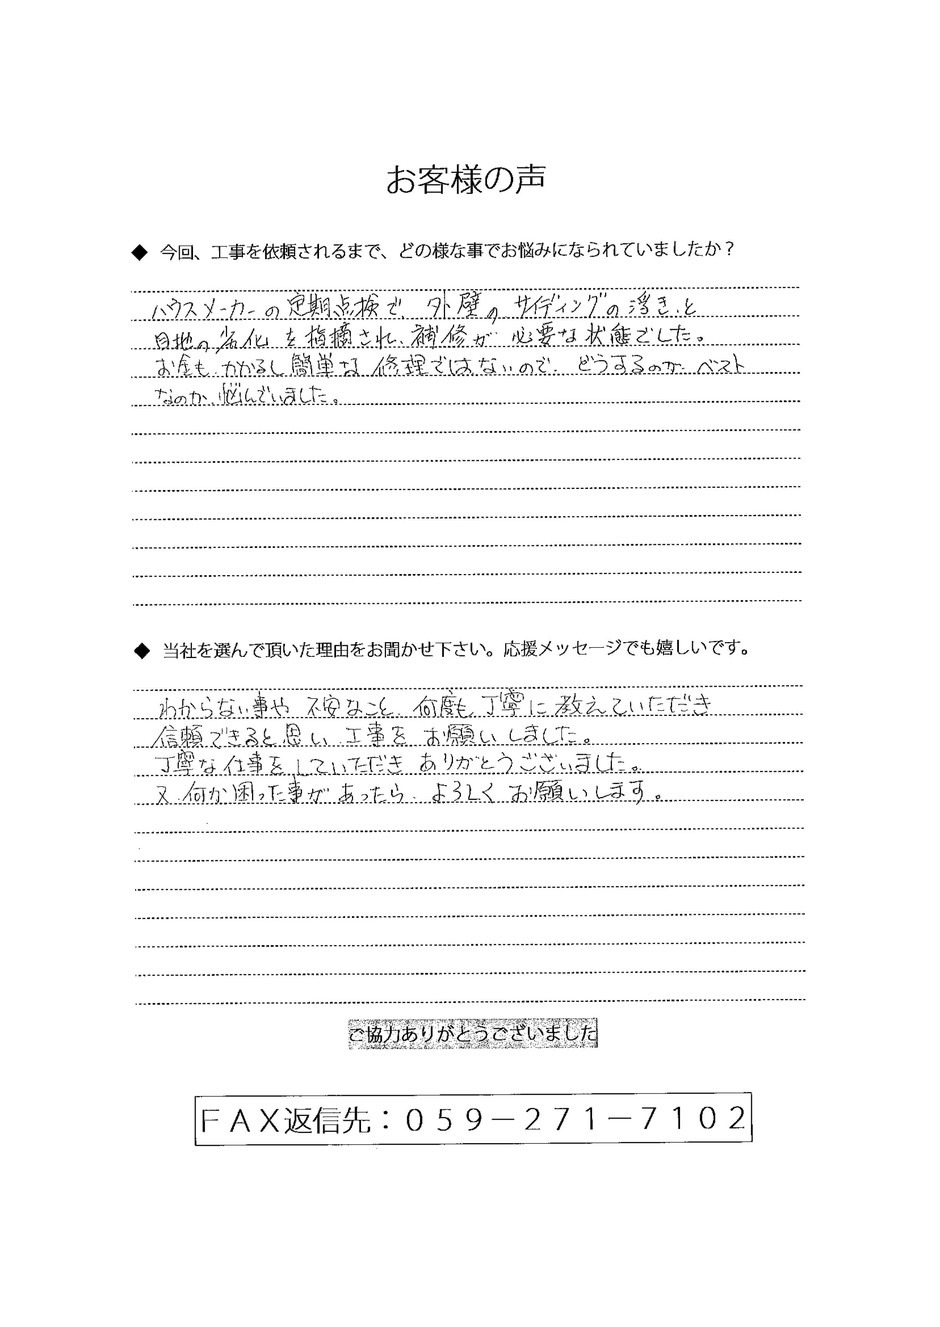 お客様の声
◆ 今回、工事を依頼されるまで、どの様な事でお悩みになられていましたか？
ハウスメーカーの定期点検で、外壁のサイディングの浮きと
目地の劣化を指摘され、補修が必要な状態でした。
お金もかかるし簡単な修理ではないので、どうするのがベスト
なのか、悩んでいました。
◆ 当社を選んで頂いた理由をお聞かせ下さい。応援メッセージでも嬉しいです。
わからない事や不安なこと、何度も丁寧に教えていただき
信頼できると思い、工事をお願いしました。
丁寧な仕事をしていただきありがとうございました。
又、何か困った事があったら、よろしくお願いします。
ご協力ありがとうございました
ＦＡＸ返信先：０５９－２７１－７１０２